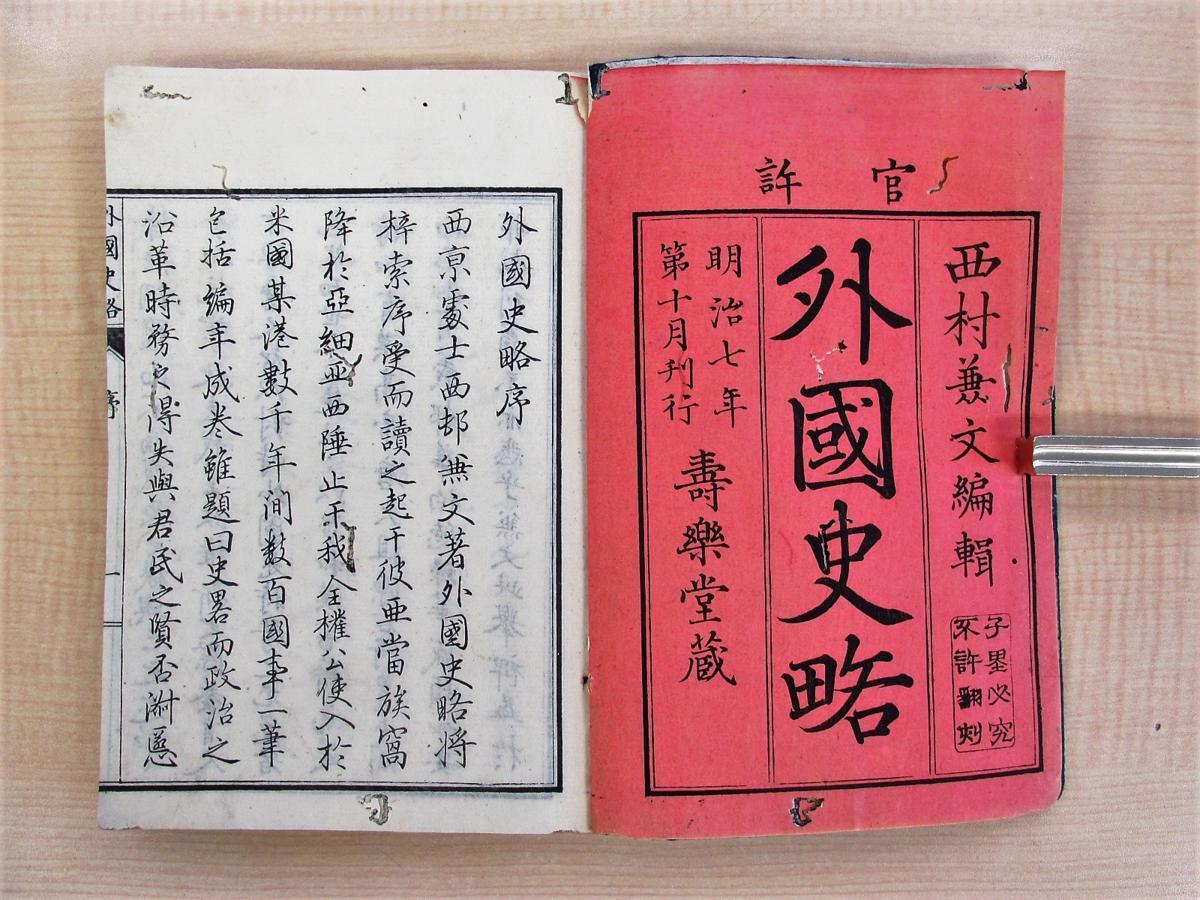 官許
西村兼文編輯
不許翻刻
外國史略
明治七年
第十月刊行
壽樂堂蔵
外國史略序
西亰處士西邨兼文著外國史略将
梓索序受而讀之起于彼亜當族窩
降於亞細亚西陲止于我全權公使入於
米國某港數千年间数百國事一筆
包括編年成卷雖題曰史畧而政治之
沿革時務之得失與君民之賢否淑慝
外國史略
序
一